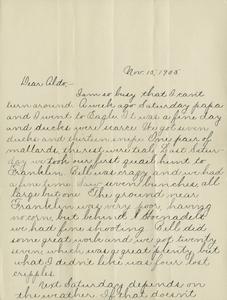 Nov. 10, 1905
Dear Aldo,-
I am so busy that I can't
turn around. A week ago Saturday papa
and I went to Eagle. It was a fine day
and ducks were scarce. We got seven
ducks and thirteen snipe. One pair of
mallards the rest were teal. Last Satur-
day we took our first quail hunt to
Franklin. Bill was crazy and we had
a fine time. Saw seven bunches, all
large but one. The ground near
Franklin was very poor, having
no corn, but behind
we had fine shooting. Bill did
some great work and we got twenty
seven, which was great plenty, but
what I didn't like was four lost
cripples.
Next Saturday depends on
the weather. If that doesn't